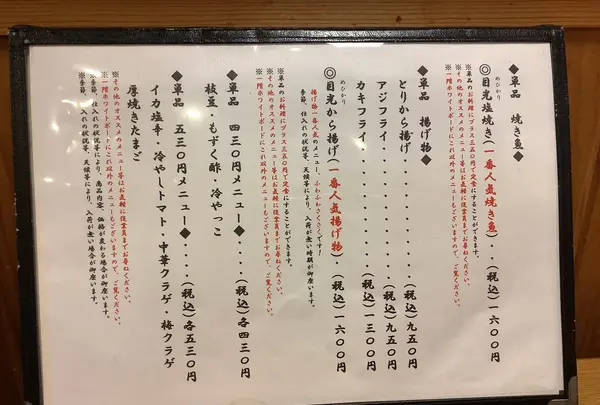 ◆単品 焼き魚◆
めひかり
◎目光塩焼き(一番人気焼き魚)・・(税込)一六〇〇円
※単品のお料理にプラス三五〇円で定食にすることができます。
※その他のオススメのメニュー等はお気軽に従業員までお尋ねください。
※一階ホワイトボードにこれ以外のメニューもございますので、ご覧ください。
◆単品 揚げ物◆
とりから揚げ・・・・・・・・・・(税込)九五〇円
アジフライ・・・・・・・・・・・(税込)九五〇円
カキフライ・・・・・・・・・・・(税込)一三〇〇円
めひかり
◎目光から揚げ(一番人気揚げ物)・(税込)一六〇〇円
揚げ物一番人気のメニュー、ふわふわさくさくです!
季節、仕入れの状況等、天候等により、入荷が無い時期が御座います。
※単品のお料理にプラス三五〇円で定食にすることができます。
※その他のオススメのメニュー等はお気軽に従業員までお尋ねください。
※一階ホワイトボードにこれ以外のメニューもございますので、ご覧ください。
◆単品 四三〇円メニュー◆・・・・(税込)各四三〇円
枝豆・もずく酢・冷やっこ
◆単品 五三〇円メニュー◆・・・・(税込)各五三〇円
イカ塩辛・冷やしトマト・中華クラゲ・梅クラゲ
厚焼きたまご
※その他のオススメのメニュー等はお気軽に従業員までお尋ねください。
※一階ホワイトボードにこれ以外のメニューもございますので、ご覧ください。
※仕入れの状況等により、商品内容、価格が変わる場合が御座います。
※季節、仕入れの状況等、天候等により、入荷が無い場合が御座います。